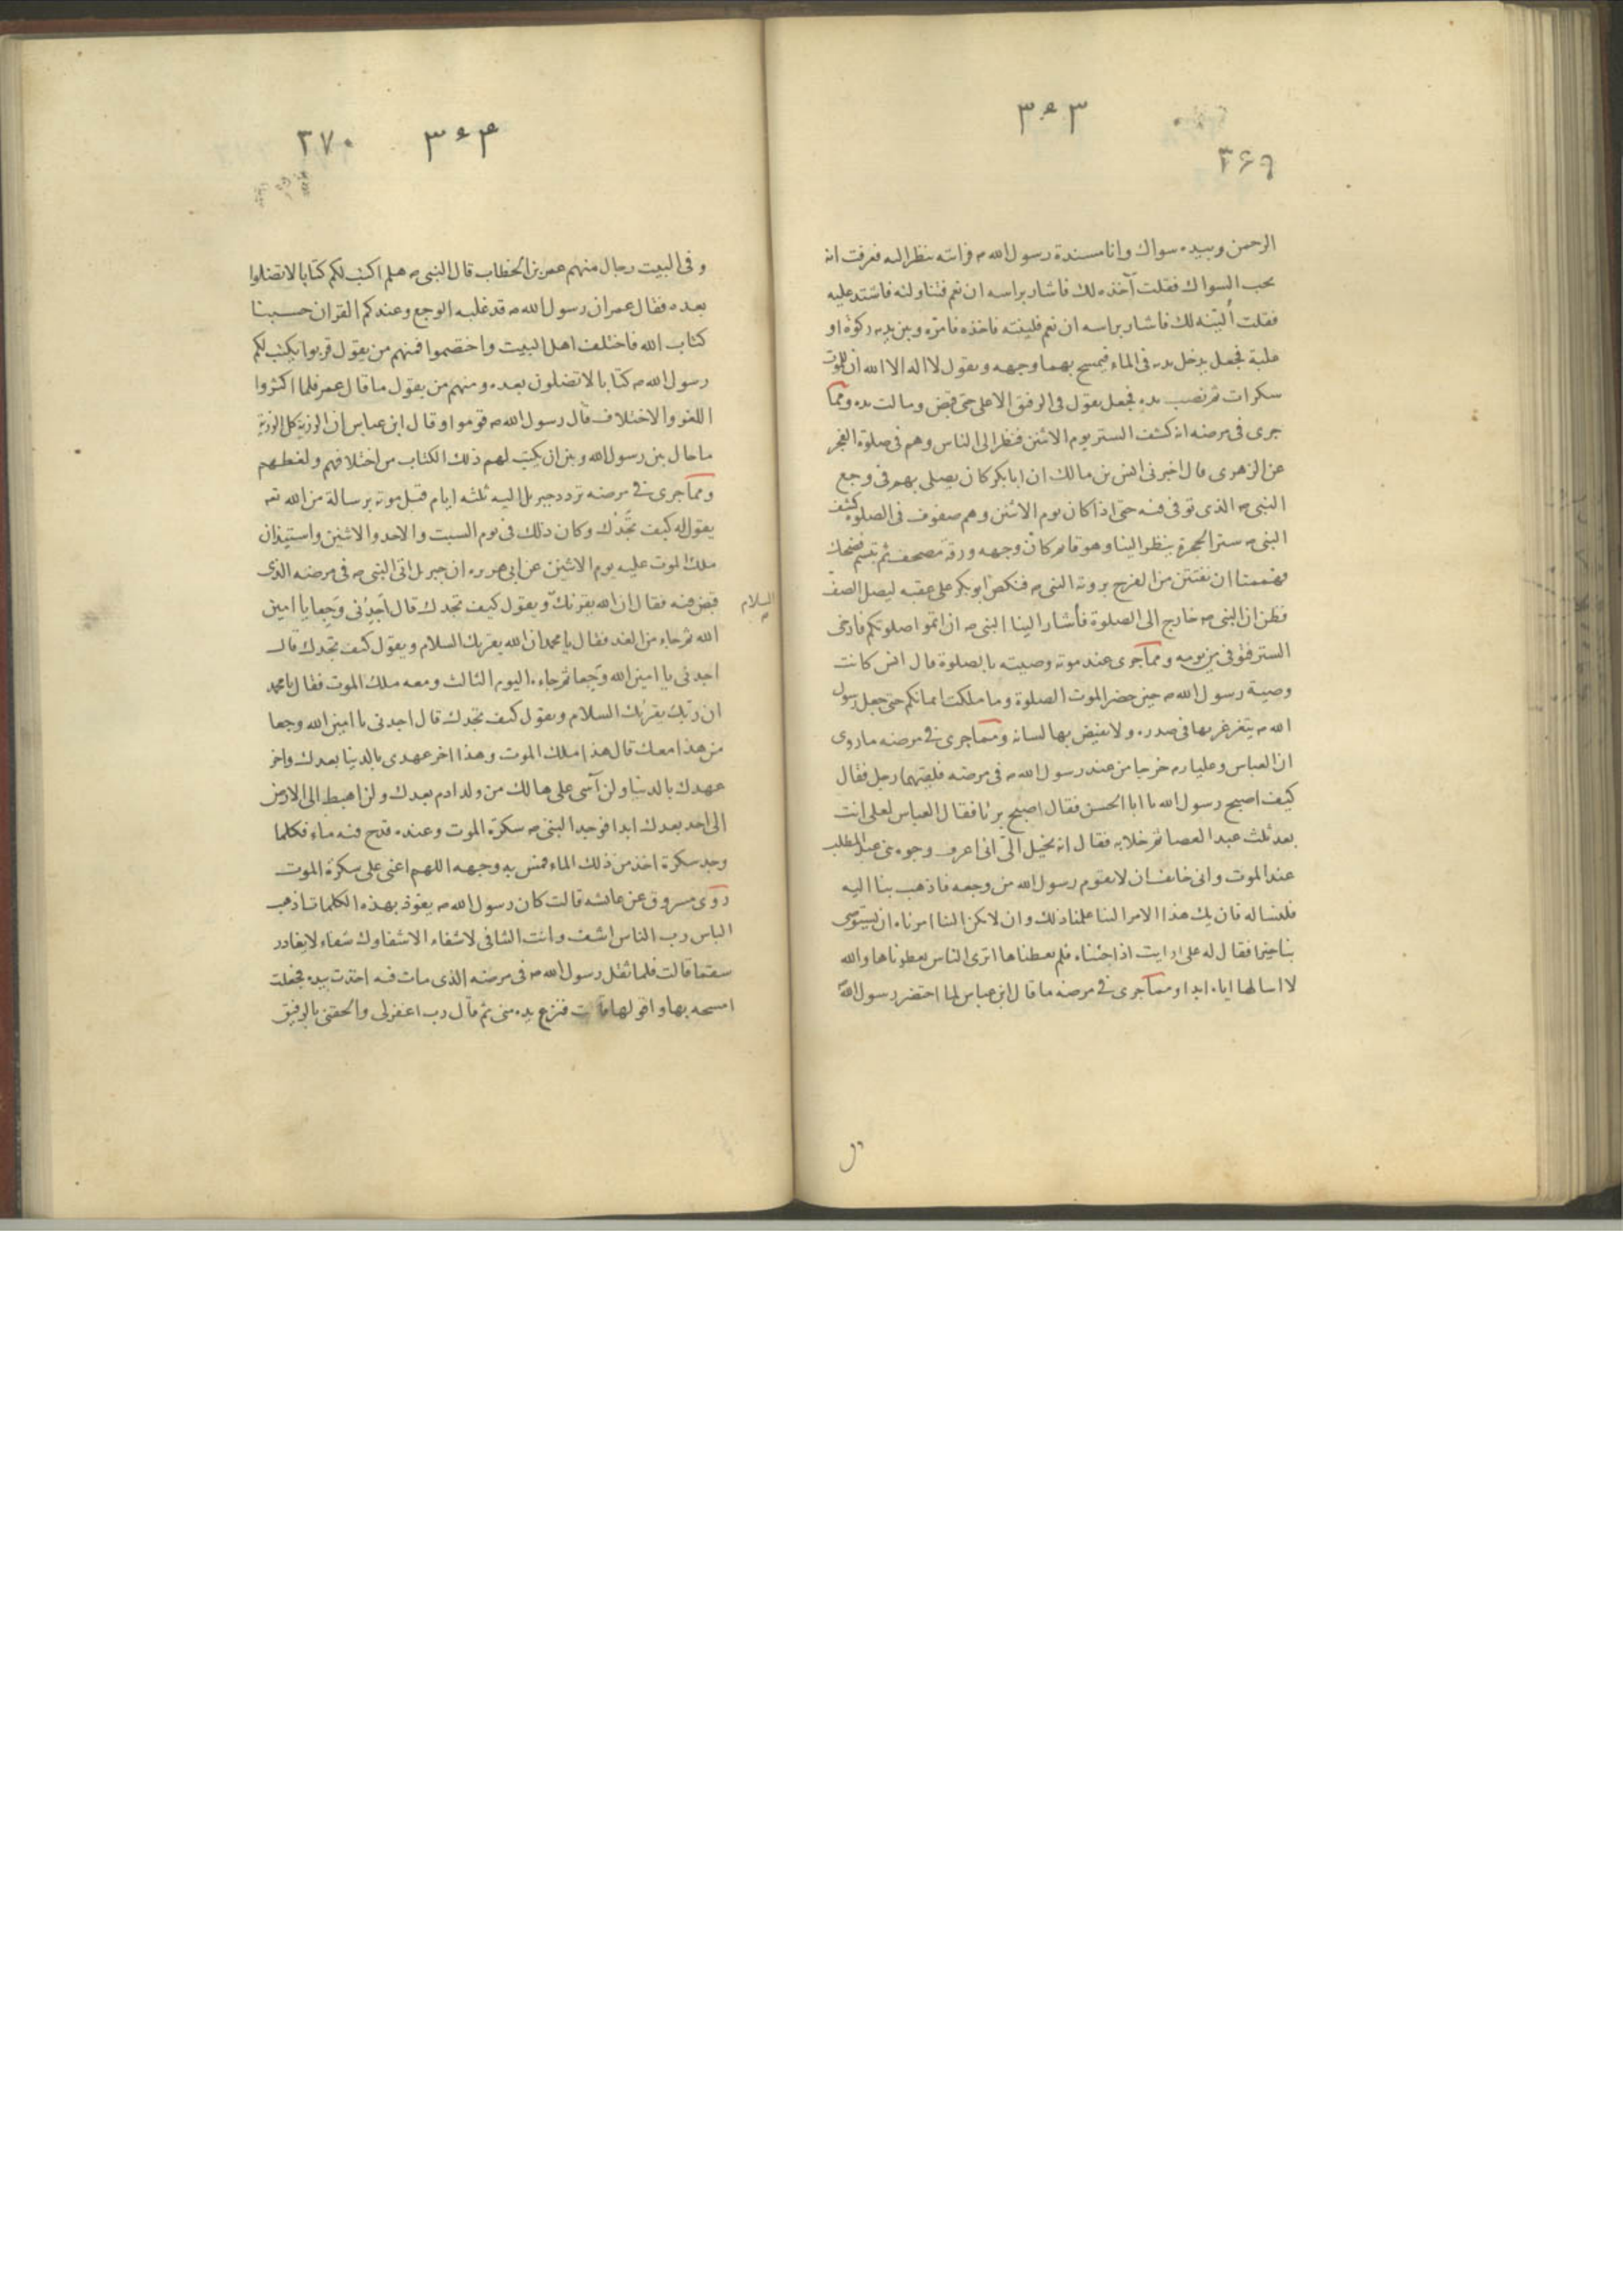 ٣٠٣
٣۶٩
الرحمن وبيده سواك وانا مسندة رسول الله صم فراىته ىنظر اليه فعرفت انه
يحب السواك فقلت آخذه لك فاشار براسه ان نعم فتناولته فاشتد عليه
فقلت اُليّنه لك فاشار براسه ان نعم فلينته فاخذه فامرّه وبين يديه ركوة او
علبة فجعل يدخل يديه فى الماء فيمسح بهما وجهه ويقول لا اله الا الله ان للموت
سكرات ثم نصب يده فجعل يقول فى الرفيق الاعلى حتى قبض ومالت يده ومما
جرى فى مرضه انه كشف الستر يوم الاثنين فنظر الى الناس وهم فى صلوة الفجر
عن الزهرى قال اخبرنى انس بن مالك ان ابا بكر كان يصلى بهم فى وجع
النبى صم الذى توفى فيه حتى اذا كان يوم الاثنين وهم صفوف فى الصلوة كشف
النبى صم ستر الحجرة ينظر الينا وهو قايم كانّ وجهه ورقة مصحف ثم تبسم فضحك
فهممنا ان نفتتن من الفرح بروية النبى صم فنكص ابو بكر على عقبه ليصل الصف
فظن ان النبى صم خارج الى الصلوة فأشار الينا النبى صم ان اتموا صلوتكم فارخى
الستر فتوفى من يومه ومما جرى عند موته وصيته بالصلوة قال انس كانت
وصية رسول الله صم حين حضر الموت الصلوة وما ملكت ايمانكم حتى جعل رسول
الله صم يتغرغر بها فى صدره ولا يفيض بها لسانه ومما جرى فى مرضه ما روى
ان العباس وعليا رم خرجا من عند رسول الله صم فى مرضه فلقيهما رجل فقال
كيف اصبح رسول الله يا ابا الحسن فقال اصبح برئا فقال العباس لعلى انت
بعد ثلث عبد العصا ثم خلا به فقال انه يخيل الىّ انى اعرف وجوه بنى عبد المطلب
عند الموت وانى خائف ان لا يقوم رسول الله من وجعه فاذهب بنا اليه
فلنساله فان يك هذا الامر الينا علمنا ذلك وان لا يكن الينا امرناه ان يستوصى
بنا خيرا فقال له على ارايت اذا جئناه فلم يعطناها اترى الناس يعطوناها والله
لا اسالها اياه ابدا ومما جرى فى مرضه ما قال ابن عباس لما احتضر رسول الله
٣٠۴
٣٧٠
وفى البيت رجال منهم عمر بن الخطاب قال النبى صم هلم اكتب لكم كتابا لا تضلوا
بعده فقال عمر ان رسول الله صم قد غلبه الوجع وعندكم القران حسبنا
كتاب الله فاختلف اهل البيت واختصموا فمنهم من يقول قربوا يكتب لكم
رسول الله صم كتابا لا تضلون بعده ومنهم من يقول ما قال عمر فلما اكثروا
اللغو والاختلاف قال رسول الله صم قوموا وقال ابن عباس ان الرزية كل الرزية
ما حال بين رسول الله وبين ان يكتب لهم ذلك الكتاب من اختلافهم ولغطهم
ومما جرى فى مرضه تردد جبريل اليه ثلثه ايام قبل موته برسالة من الله تعہ
يقول له كيف تجدك وكان ذلك فى يوم السبت والاحد والاثنين واستيذان
ملك الموت عليه يوم الاثنين عن ابى هريره ان جبريل اتى النبى صم فى مرضه الذى
قبض فيه فقال ان الله يقرئك ويقول كيف تجدك قال اَجِدُنى وَجِعا يا امين
السلام
الله ثم جاء من الغد فقال يا محمد ان الله يقرئك السلام ويقول كيف تجدك قال
اجدنى يا امين الله وَجِعا ثم جاءه اليوم الثالث ومعه ملك الموت فقال يا محمد
ان ربّك يقرئك السلام ويقول كيف تجدك قال اجدنى يا امين الله وجعا
من هذا معك قال هذا ملك الموت وهذا اخر عهدى بالدنيا بعدك واخر
عهدك بالدنيا ولن آسى على هالك من ولد ادم بعدك ولن اهبط الى الارض
الى احد بعدك ابدا فوجد النبى صم سكرة الموت وعنده قدح فيه ماء فكلما
وجد سكرة اخذ من ذلك الماء فمس به وجهه اللهم اعنى على سكرة الموت
روى مسروق عن عائشه قالت كان رسول الله صم يعوّذ بهذه الكلمات اذهب
الباس رب الناس اشف وانت الشافى لا شفاء الا شفاوك شفاء لا يغادر
سقما قالت فلما ثقل رسول الله صم فى مرضه الذى مات فيه اخذت بيده فجعلت
امسحه بها واقولها قالت فنزع يده منى ثم قال رب اغفر لى والحقنى بالرفيق